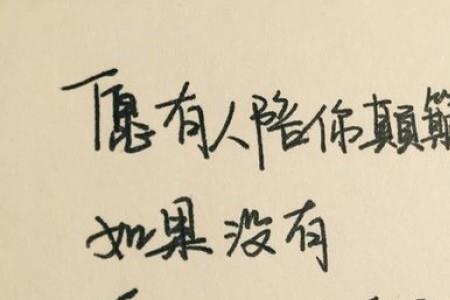 愿有人陪你顛簸
如果没有